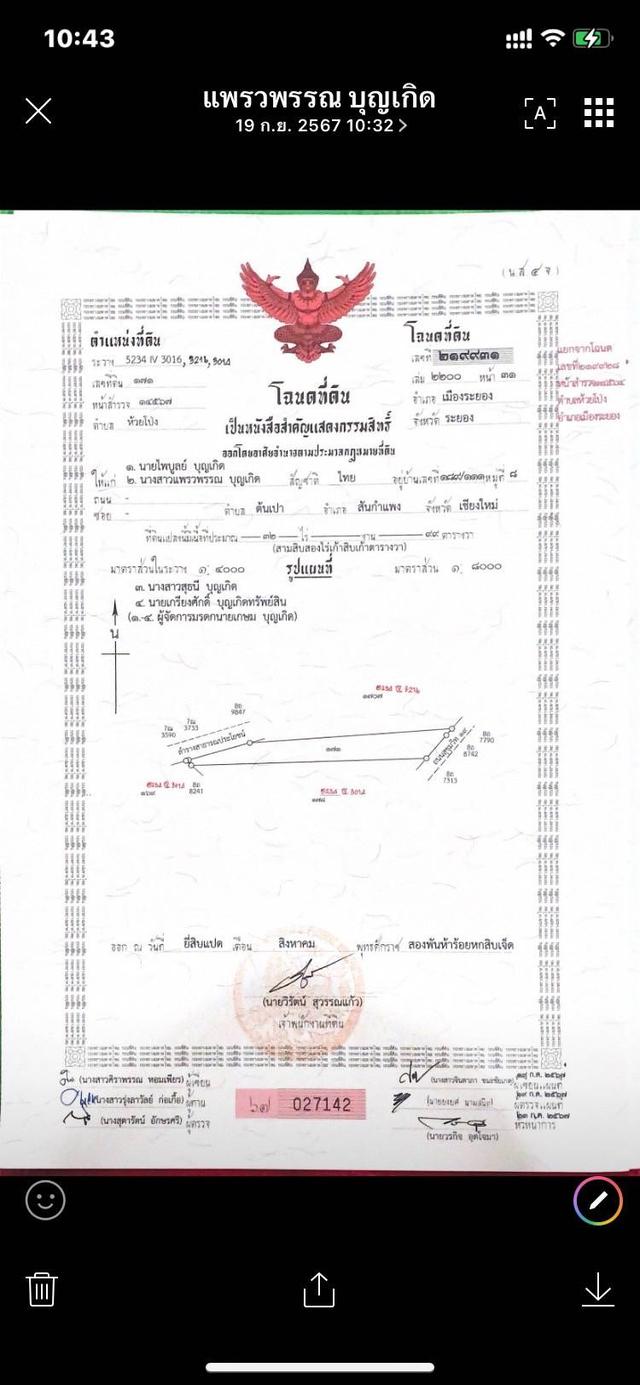 10:43
แพรวพรรณ บุญเกิด
19 ก.ย. 2567 10:32
A
(น ส ๔ จ)
ตำแหน่งที่ดิน
ระวาง 5234 IV 3016, 3216, 3018
เลขที่ดิน ๑๗๑
หน้าสำรวจ ๑๔๕๖๗
ตำบล ห้วยโป่ง
โฉนดที่ดิน
เลขที่ ๒๑๙๙๓๑
เล่ม ๒๒๐๐ หน้า ๓๑
อำเภอ เมืองระยอง
จังหวัด ระยอง
แยกจากโฉนด
ตำบลห้วยโป่ง
อำเภอเมืองระยอง
โฉนดที่ดิน
เป็นหนังสือสำคัญแสดงกรรมสิทธิ์
ออกโดยอาศัยอำนาจตามประมวลกฎหมายที่ดิน
๑. นายไพบูลย์ บุญเกิด
ให้แก่ ๒. นางสาวแพรวพรรณ บุญเกิด สัญชาติ ไทย อยู่บ้านเลขที่ ๑๘๙/๑๑๑ หมู่ที่ ๘
ถนน -
ซอย - ตำบล ต้นเปา อำเภอ สันกำแพง จังหวัด เชียงใหม่
ที่ดินแปลงนี้มีเนื้อที่ประมาณ ๓๒ ไร่ — งาน ๙๙ ตารางวา
(สามสิบสองไร่เก้าสิบเก้าตารางวา)
มาตราส่วนในระวาง ๑: ๔๐๐๐ รูปแผนที่ มาตราส่วน ๑: ๘๐๐๐
๓. นางสาวสุธนี บุญเกิด
๔. นายเกรียงศักดิ์ บุญเกิดทรัพย์สิน
(๑.-๔. ผู้จัดการมรดกนายเกษม บุญเกิด)
น
9847
3733
3590
ลำรางสาธารณประโยชน์
๑๗๑
7790
8742
7313
8241
ออก ณ วันที่ ยี่สิบแปด เดือน สิงหาคม พุทธศักราช สองพันห้าร้อยหกสิบเจ็ด
(นายวิรัตน์ สุวรรณแก้ว)
เจ้าพนักงานที่ดิน
(นางสาวศิราพรรณ หอมเพียร) ผู้เขียน
(นางสาวรุ่งลาวัลย์ ก่อเกื้อ) ผู้ทาน
(นางสุดารัตน์ อักษรศรี) ผู้ตรวจ
๖๗ 027142
(นายวรกิจ อุตโจมา)